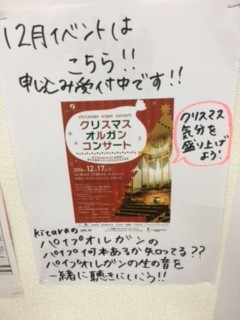 12月イベントは
こちら!!
申し込み受付中です!!
christmas organ concert
クリスマス
オルガン
コンサート
2016.12.17
クリスマス
気分を
盛り上げ
よう!
kitaraの
パイプオルガンの
パイプ何本あるか知ってる??
パイプオルガンの生の音を
一緒に聴きにいこう!!